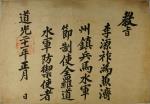 教旨
李源祚為熊濟
州鎮兵馬水軍
節制使全羅道
水軍防禦使者
道光二十一年正月　日